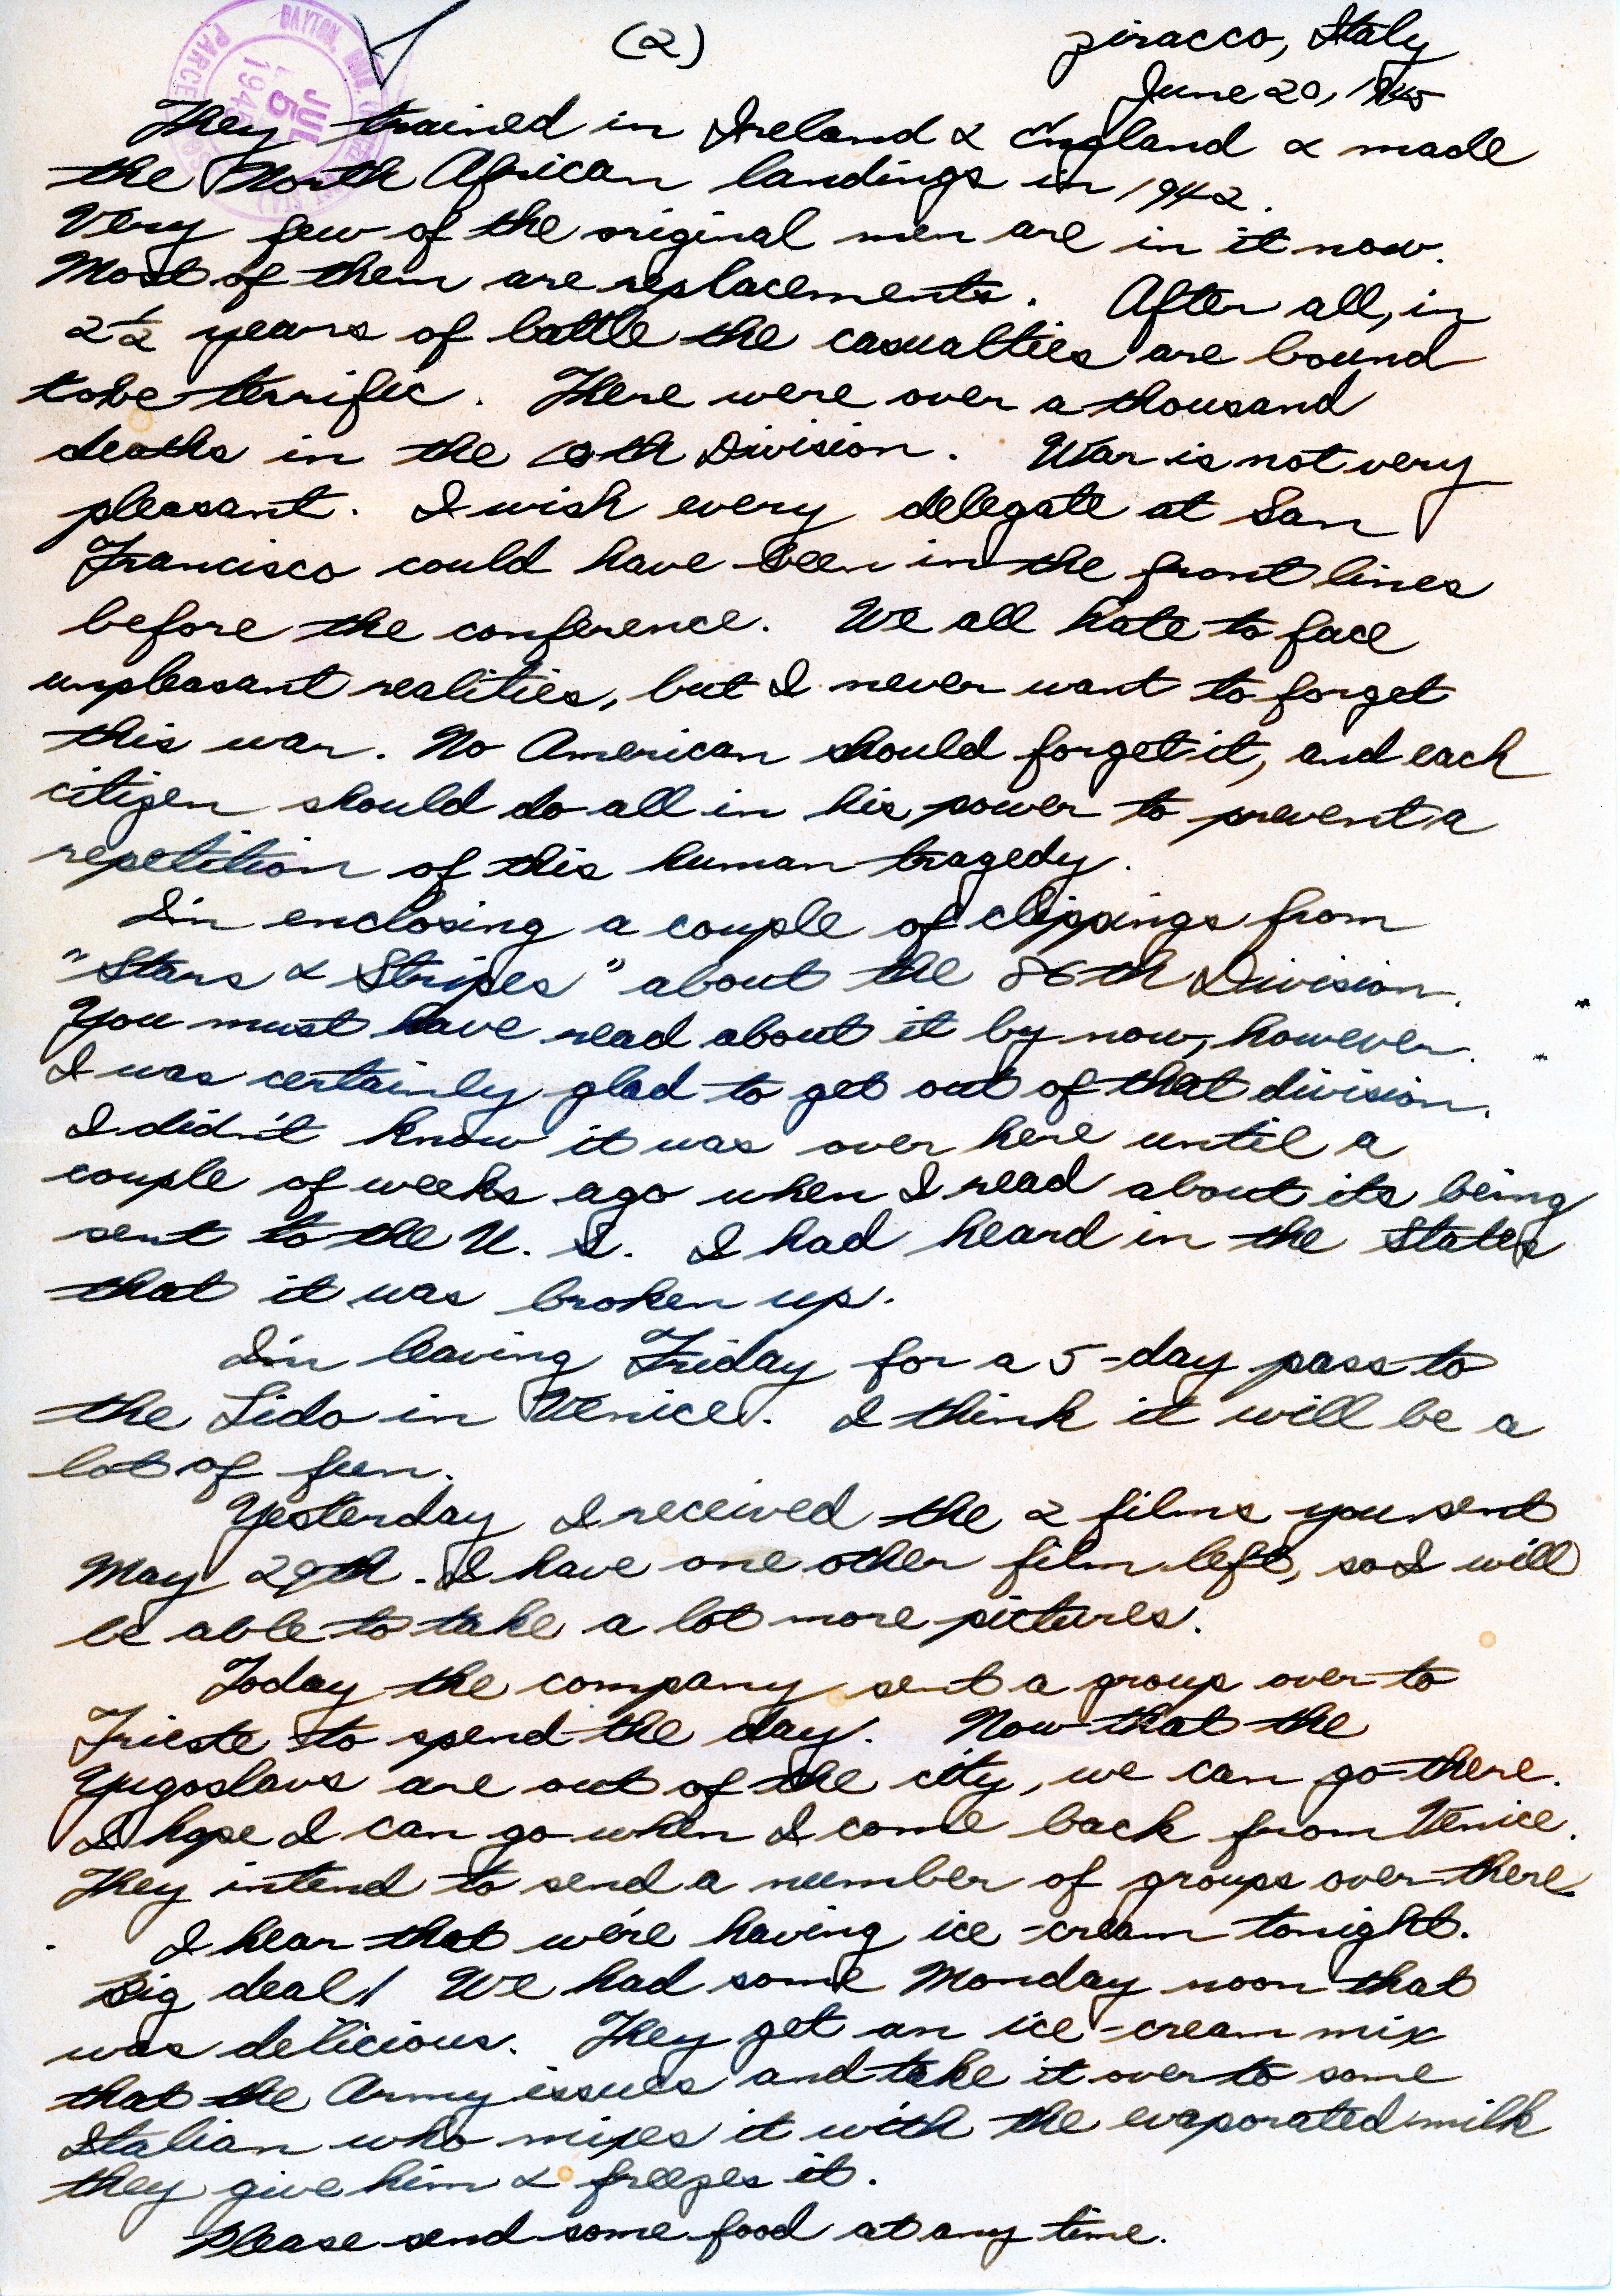 (2)
Ziracco, Italy
June 20, 1945
DAYTON, OHIO
PARCEL
JUL
5
1945
They trained in Ireland & England & made
the North African landings in 1942.
Very few of the original men are in it now.
Most of them are replacements. After all, in
2 1/2 years of battle the casualties are bound
to be terrific. There were over a thousand
deaths in the 10th Division. War is not very
pleasant. I wish every delegate at San
Francisco could have been in the front lines
before the conference. We all hate to face
unpleasant realities, but I never want to forget
this war. No American should forget it, and each
citizen should do all in his power to prevent a
repetition of this human tragedy.
I'm enclosing a couple of clippings from
"Stars & Stripes" about the 86th Division.
You must have read about it by now, however.
I was certainly glad to get out of that division.
I didn't know it was over here until a
couple of weeks ago when I read about its being
sent to the U. S. I had heard in the States
that it was broken up.
I'm leaving Friday for a 5-day pass to
the Lido in Venice. I think it will be a
lot of fun.
Yesterday I received the 2 films you sent
May 29th. I have one other film left, so I will
be able to take a lot more pictures.
Today the company sent a group over to
Trieste to spend the day. Now that the
Yugoslavs are out of the city, we can go there.
I hope I can go when I come back from Venice.
They intend to send a number of groups over there.
I hear that we're having ice-cream tonight.
Big deal! We had some Monday noon that
was delicious. They get an ice-cream mix
that the Army issues and take it over to some
Italian who mixes it with the evaporated milk
they give him & freezes it.
Please send some food at any time.